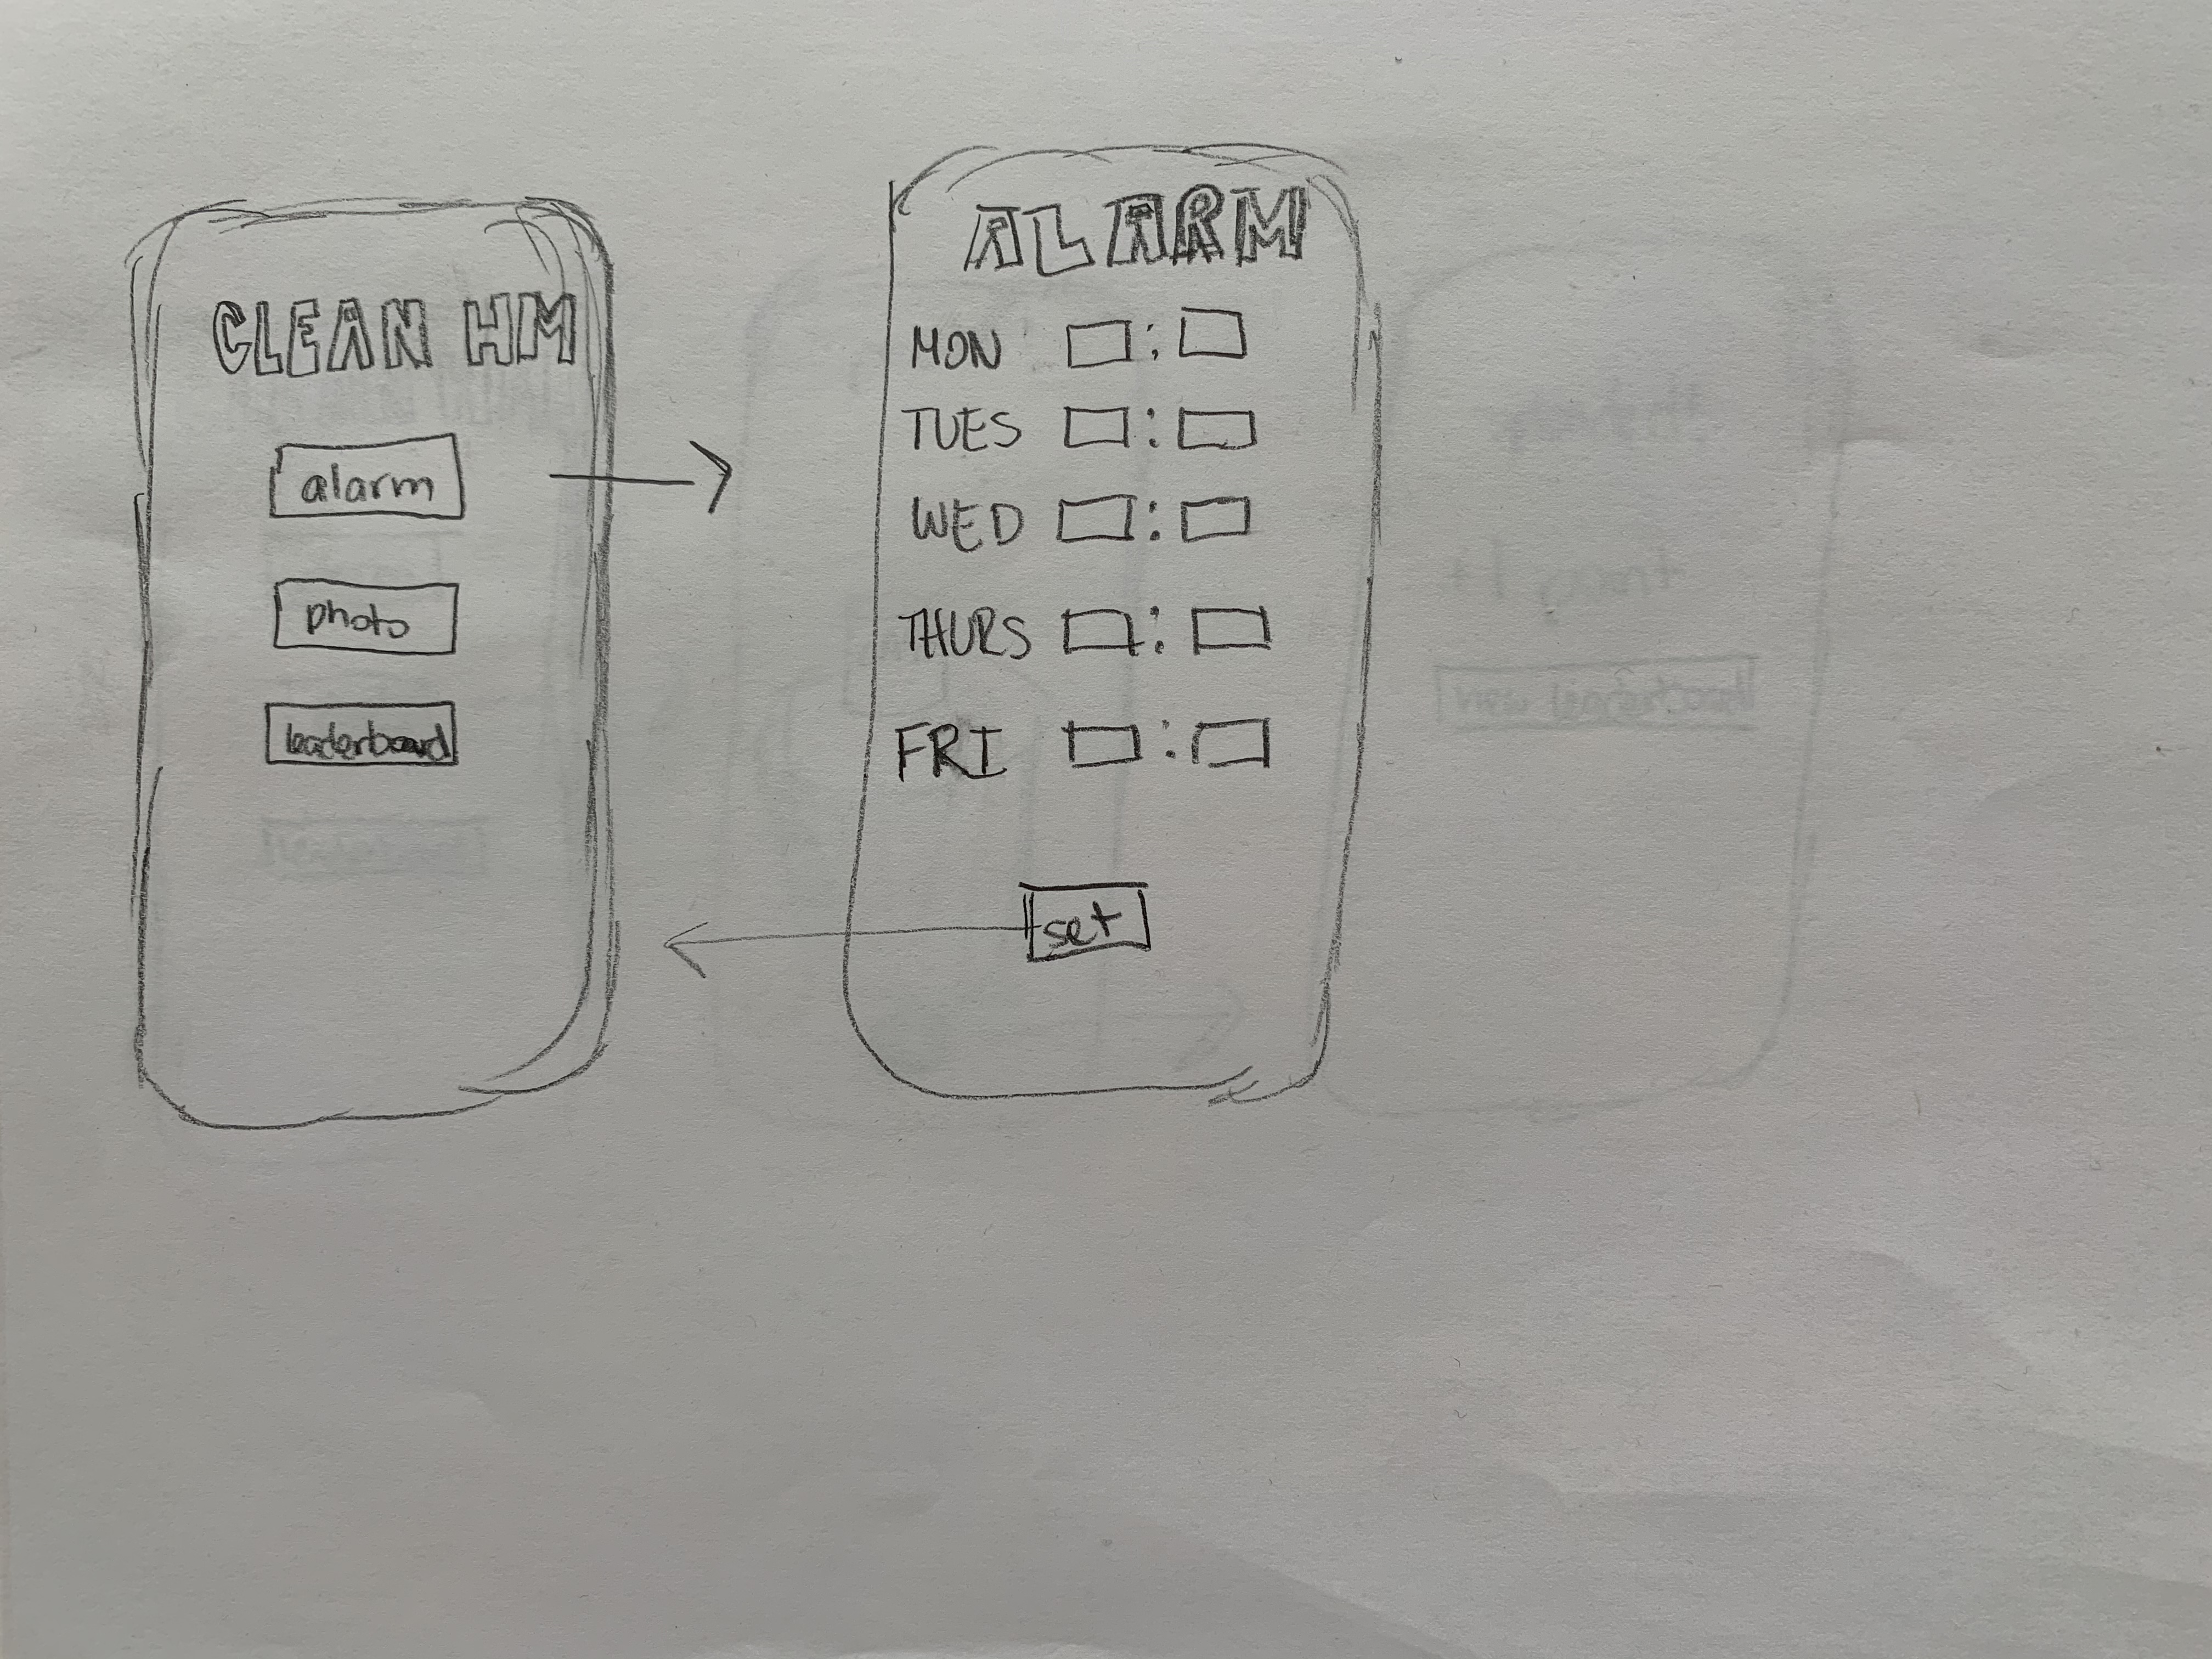 CLEAN HM
alarm
photo
leaderboard
ALARM
MON :
TUES :
WED :
THURS :
FRI :
set